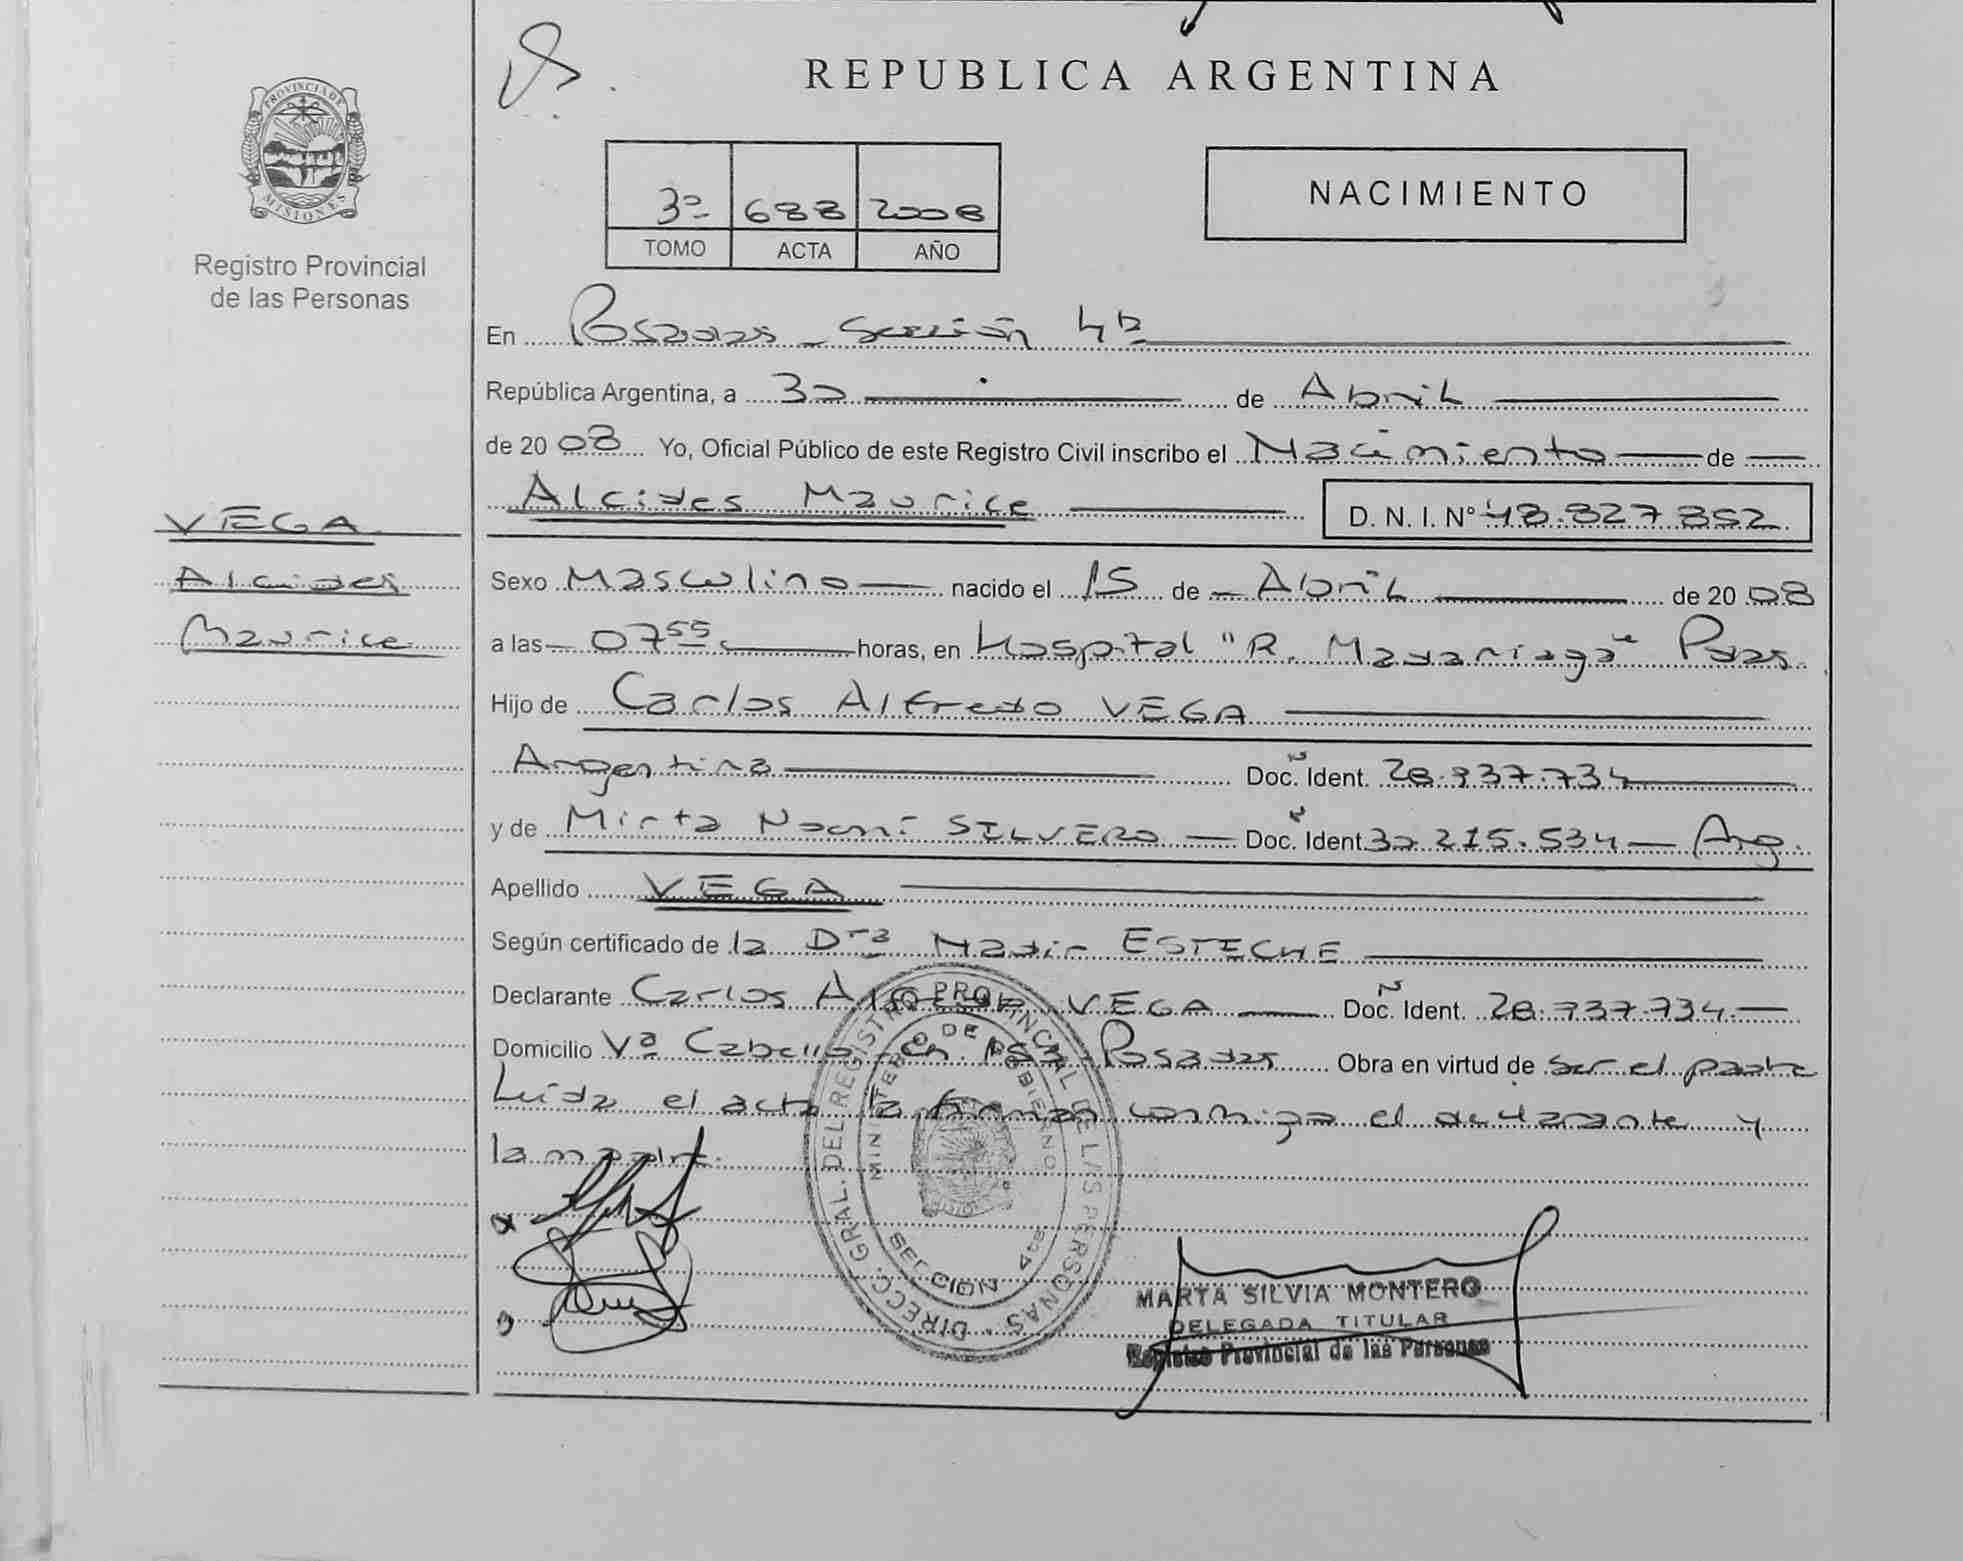 REPUBLICA ARGENTINA
PROVINCIA DE
MISIONES
Registro Provincial
de las Personas
3º 688 2008
TOMO ACTA AÑO
NACIMIENTO
En Posadas - Sección 4ta
República Argentina, a 30 de Abril
de 2008 Yo, Oficial Público de este Registro Civil inscribo el Nacimiento de
Alcides Maurice D. N. I. Nº 48.827.852
VEGA
Alcides
Maurice
Sexo Masculino nacido el 15 de Abril de 2008
a las 07 55 horas, en Hospital "R. Madariaga" Pdas.
Hijo de Carlos Alfredo VEGA
Argentina Doc. Ident. Nº
y de Mirta Noemí SILVERO Doc. Ident. Nº 30.215.534 Arg.
Apellido VEGA
Según certificado de la Dra Nadir ESTECHE
Declarante Carlos Alfredo VEGA Doc. Ident. Nº
Domicilio Vª Cabello Posadas Obra en virtud de ser el padre
Leída el acta la firman conmigo el declarante y
la madre.
DIRECC. GRAL. DEL REGISTRO PROVINCIAL DE LAS PERSONAS
MINISTERIO DE GOBIERNO
SECCION 4ta
MARTA SILVIA MONTERO
DELEGADA TITULAR
Registro Provincial de las Personas